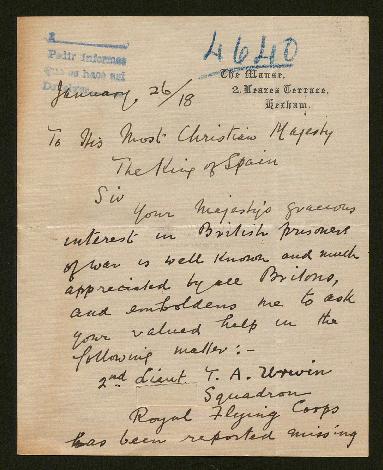 4640
Pedir informes
que se hace así
The Manse,
2. Leazes Terrace,
Hexham.
January, 26/18
To His Most Christian Majesty
The King of Spain
Sir
Your Majesty's gracious
interest in British prisoners
of war is well known and much
appreciated by all Britons,
and emboldens me to ask
your valued help in the
following matter:-
2nd Lieut. T. A. Urwin
Squadron
Royal Flying Corps
has been reported missing